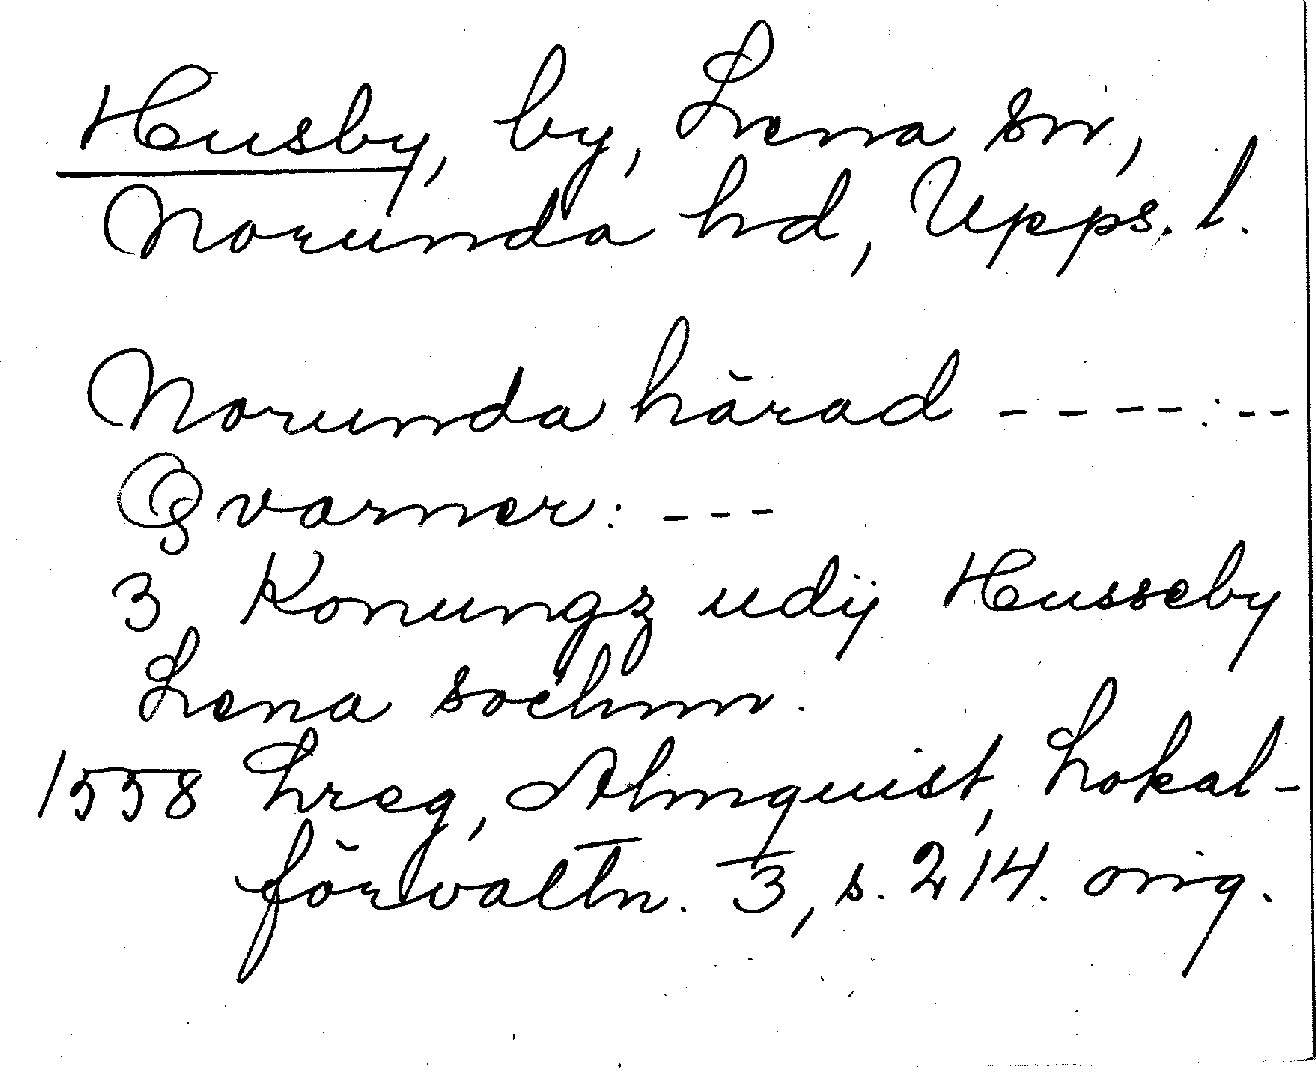 Husby, by, Lena sn,
Norunda hd, Upps. l.
Norunda härad - - - - : - -
Qvarner: - - -
3 Konungz udij Husseby
Lena sochnn.
1558 hreg, Almquist, Lokal-
förvaltn. 3, s. 214. orig.